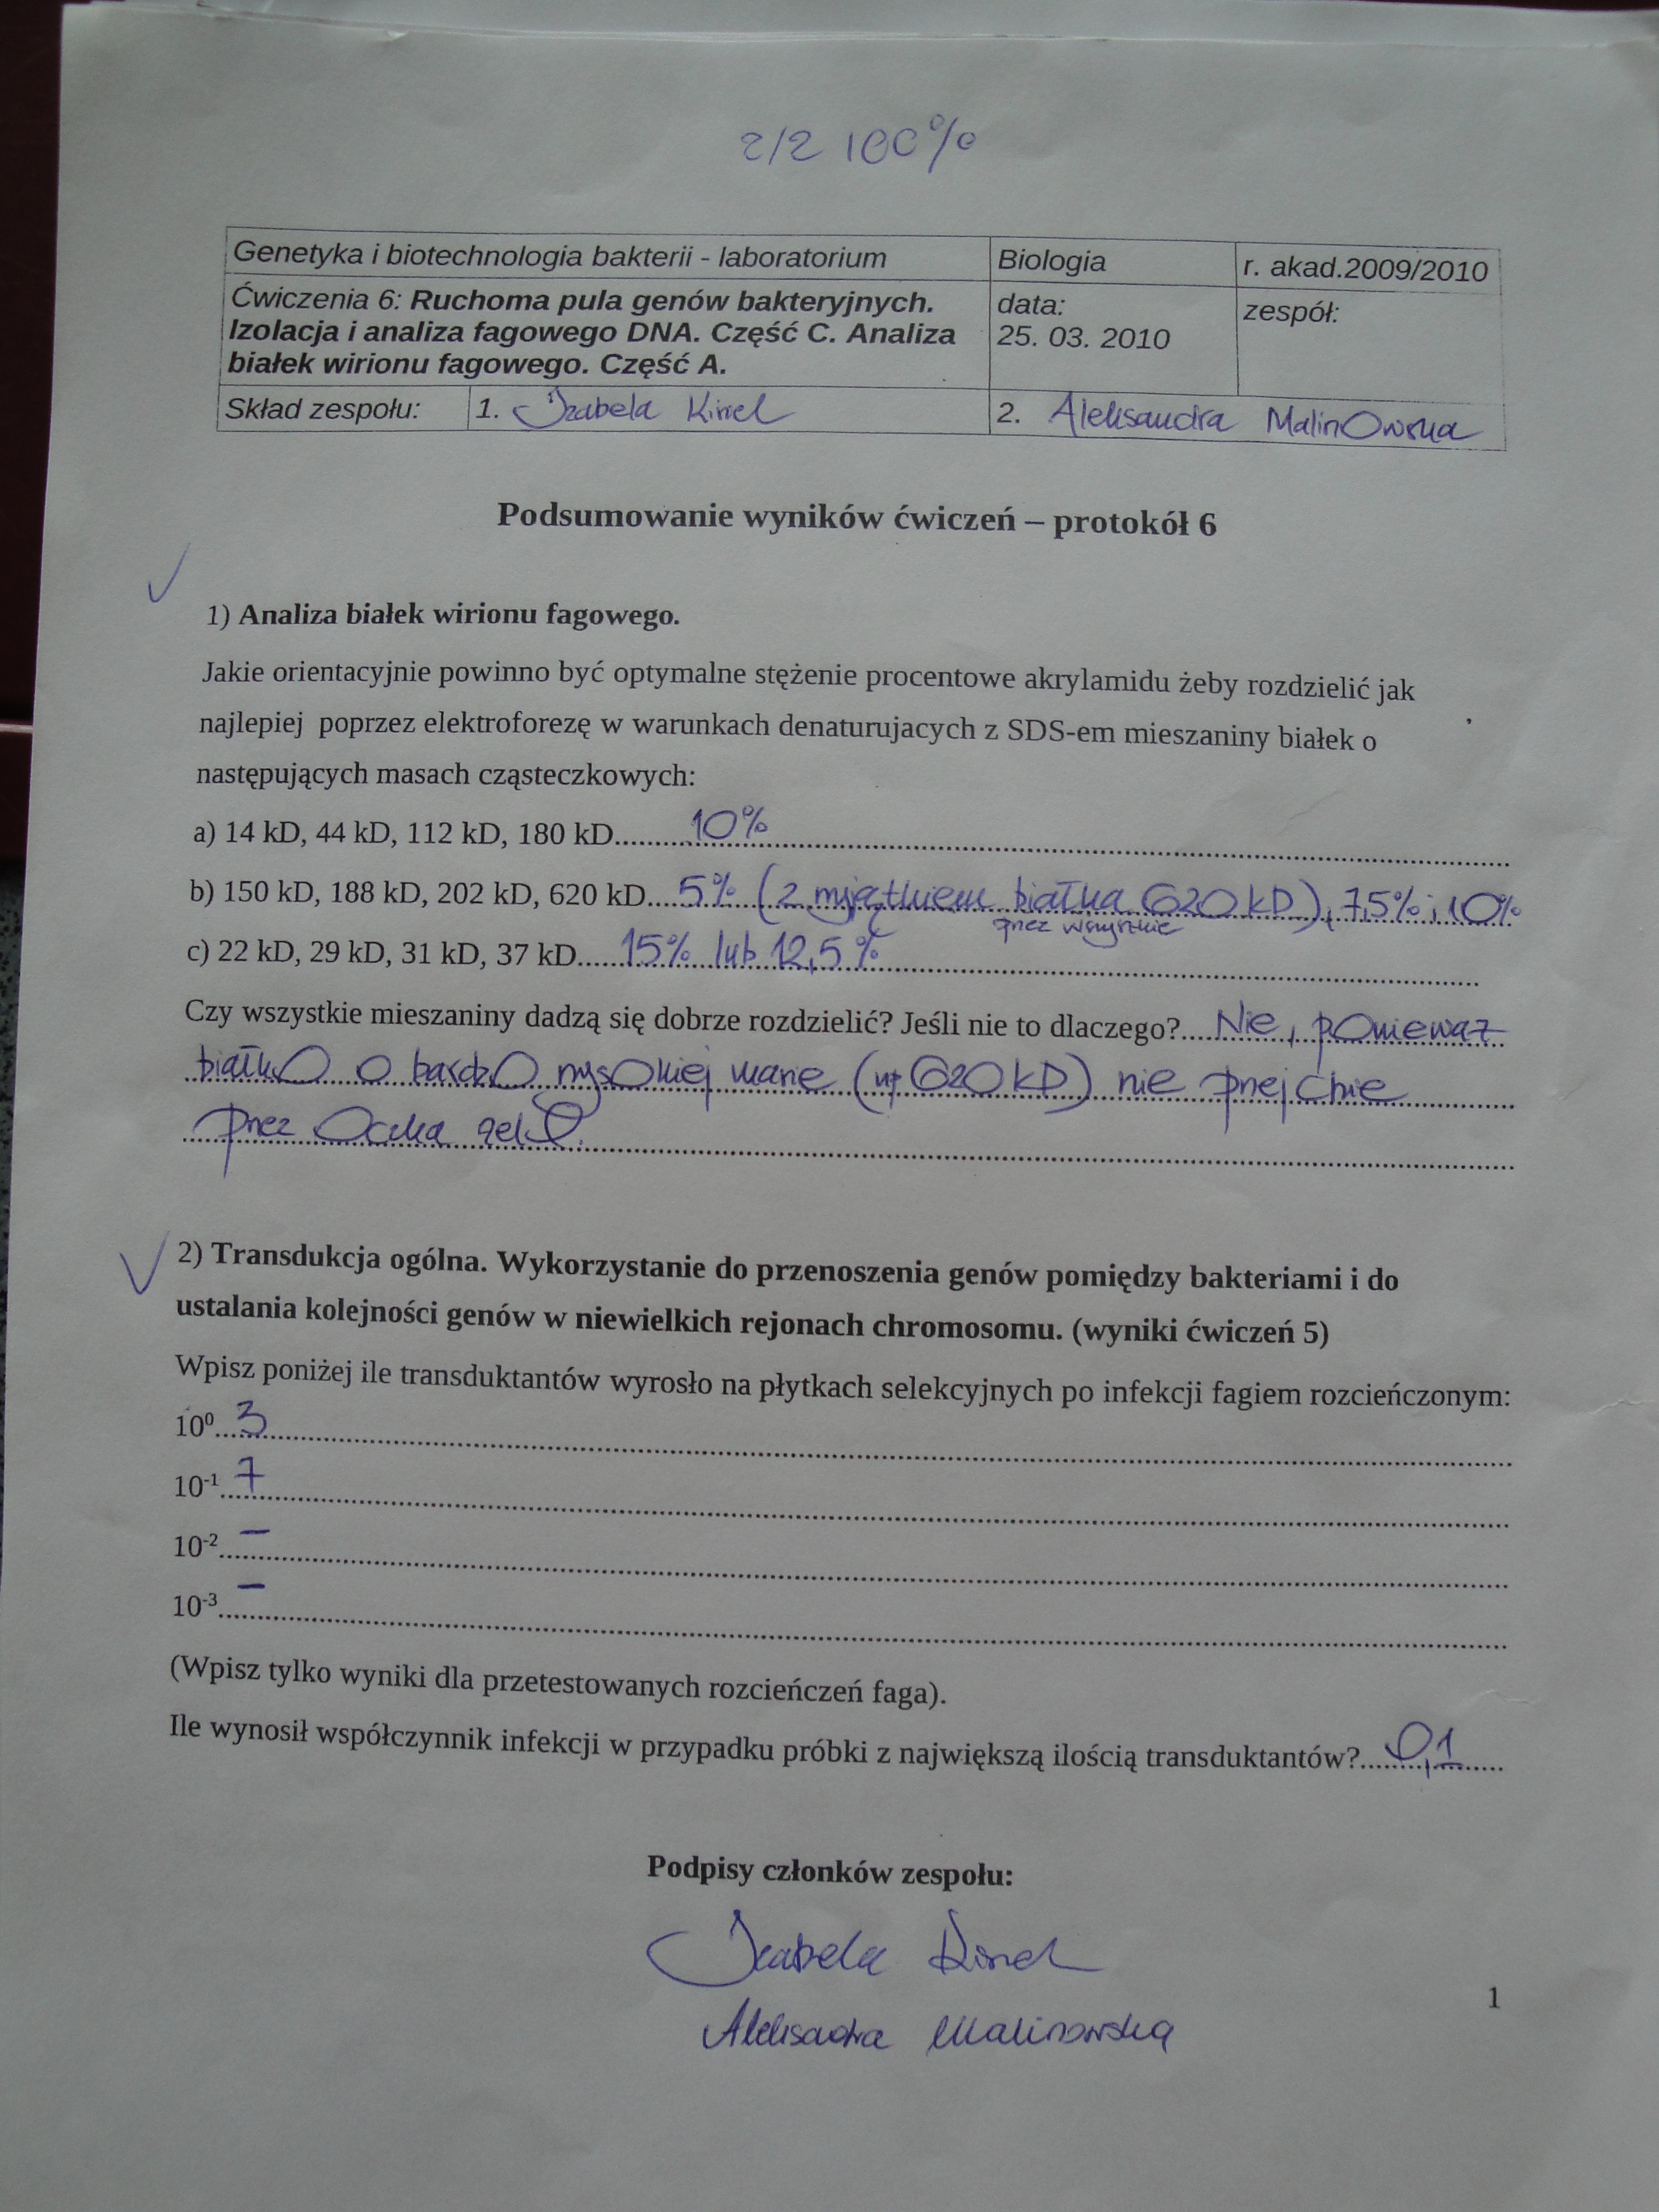 2/2 100%
Genetyka i biotechnologia bakterii - laboratorium Biologia r. akad.2009/2010
Ćwiczenia 6: Ruchoma pula genów bakteryjnych. data: zespół:
Izolacja i analiza fagowego DNA. Część C. Analiza 25. 03. 2010
białek wirionu fagowego. Część A.
Skład zespołu: 1. Izabela 2. Aleksandra MalinOwska
Podsumowanie wyników ćwiczeń – protokół 6
1) Analiza białek wirionu fagowego.
Jakie orientacyjnie powinno być optymalne stężenie procentowe akrylamidu żeby rozdzielić jak
najlepiej poprzez elektroforezę w warunkach denaturujacych z SDS-em mieszaniny białek o
następujących masach cząsteczkowych:
a) 14 kD, 44 kD, 112 kD, 180 kD.......10%
b) 150 kD, 188 kD, 202 kD, 620 kD....5% (z wyjątkiem białka 620 kD), 7,5% i 10%
przez wszystkie
c) 22 kD, 29 kD, 31 kD, 37 kD.....15% lub 12,5%
Czy wszystkie mieszaniny dadzą się dobrze rozdzielić? Jeśli nie to dlaczego?....Nie, ponieważ
białko o bardzo wysokiej masie (np 620 kD) nie przejdzie
przez oczka żelu.
2) Transdukcja ogólna. Wykorzystanie do przenoszenia genów pomiędzy bakteriami i do
ustalania kolejności genów w niewielkich rejonach chromosomu. (wyniki ćwiczeń 5)
Wpisz poniżej ile transduktantów wyrosło na płytkach selekcyjnych po infekcji fagiem rozcieńczonym:
10⁰...3
10⁻¹..7
10⁻²..–
10⁻³..–
(Wpisz tylko wyniki dla przetestowanych rozcieńczeń faga).
Ile wynosił współczynnik infekcji w przypadku próbki z największą ilością transduktantów?....0,1
Podpisy członków zespołu:
Izabela
Aleksandra Malinowska
1